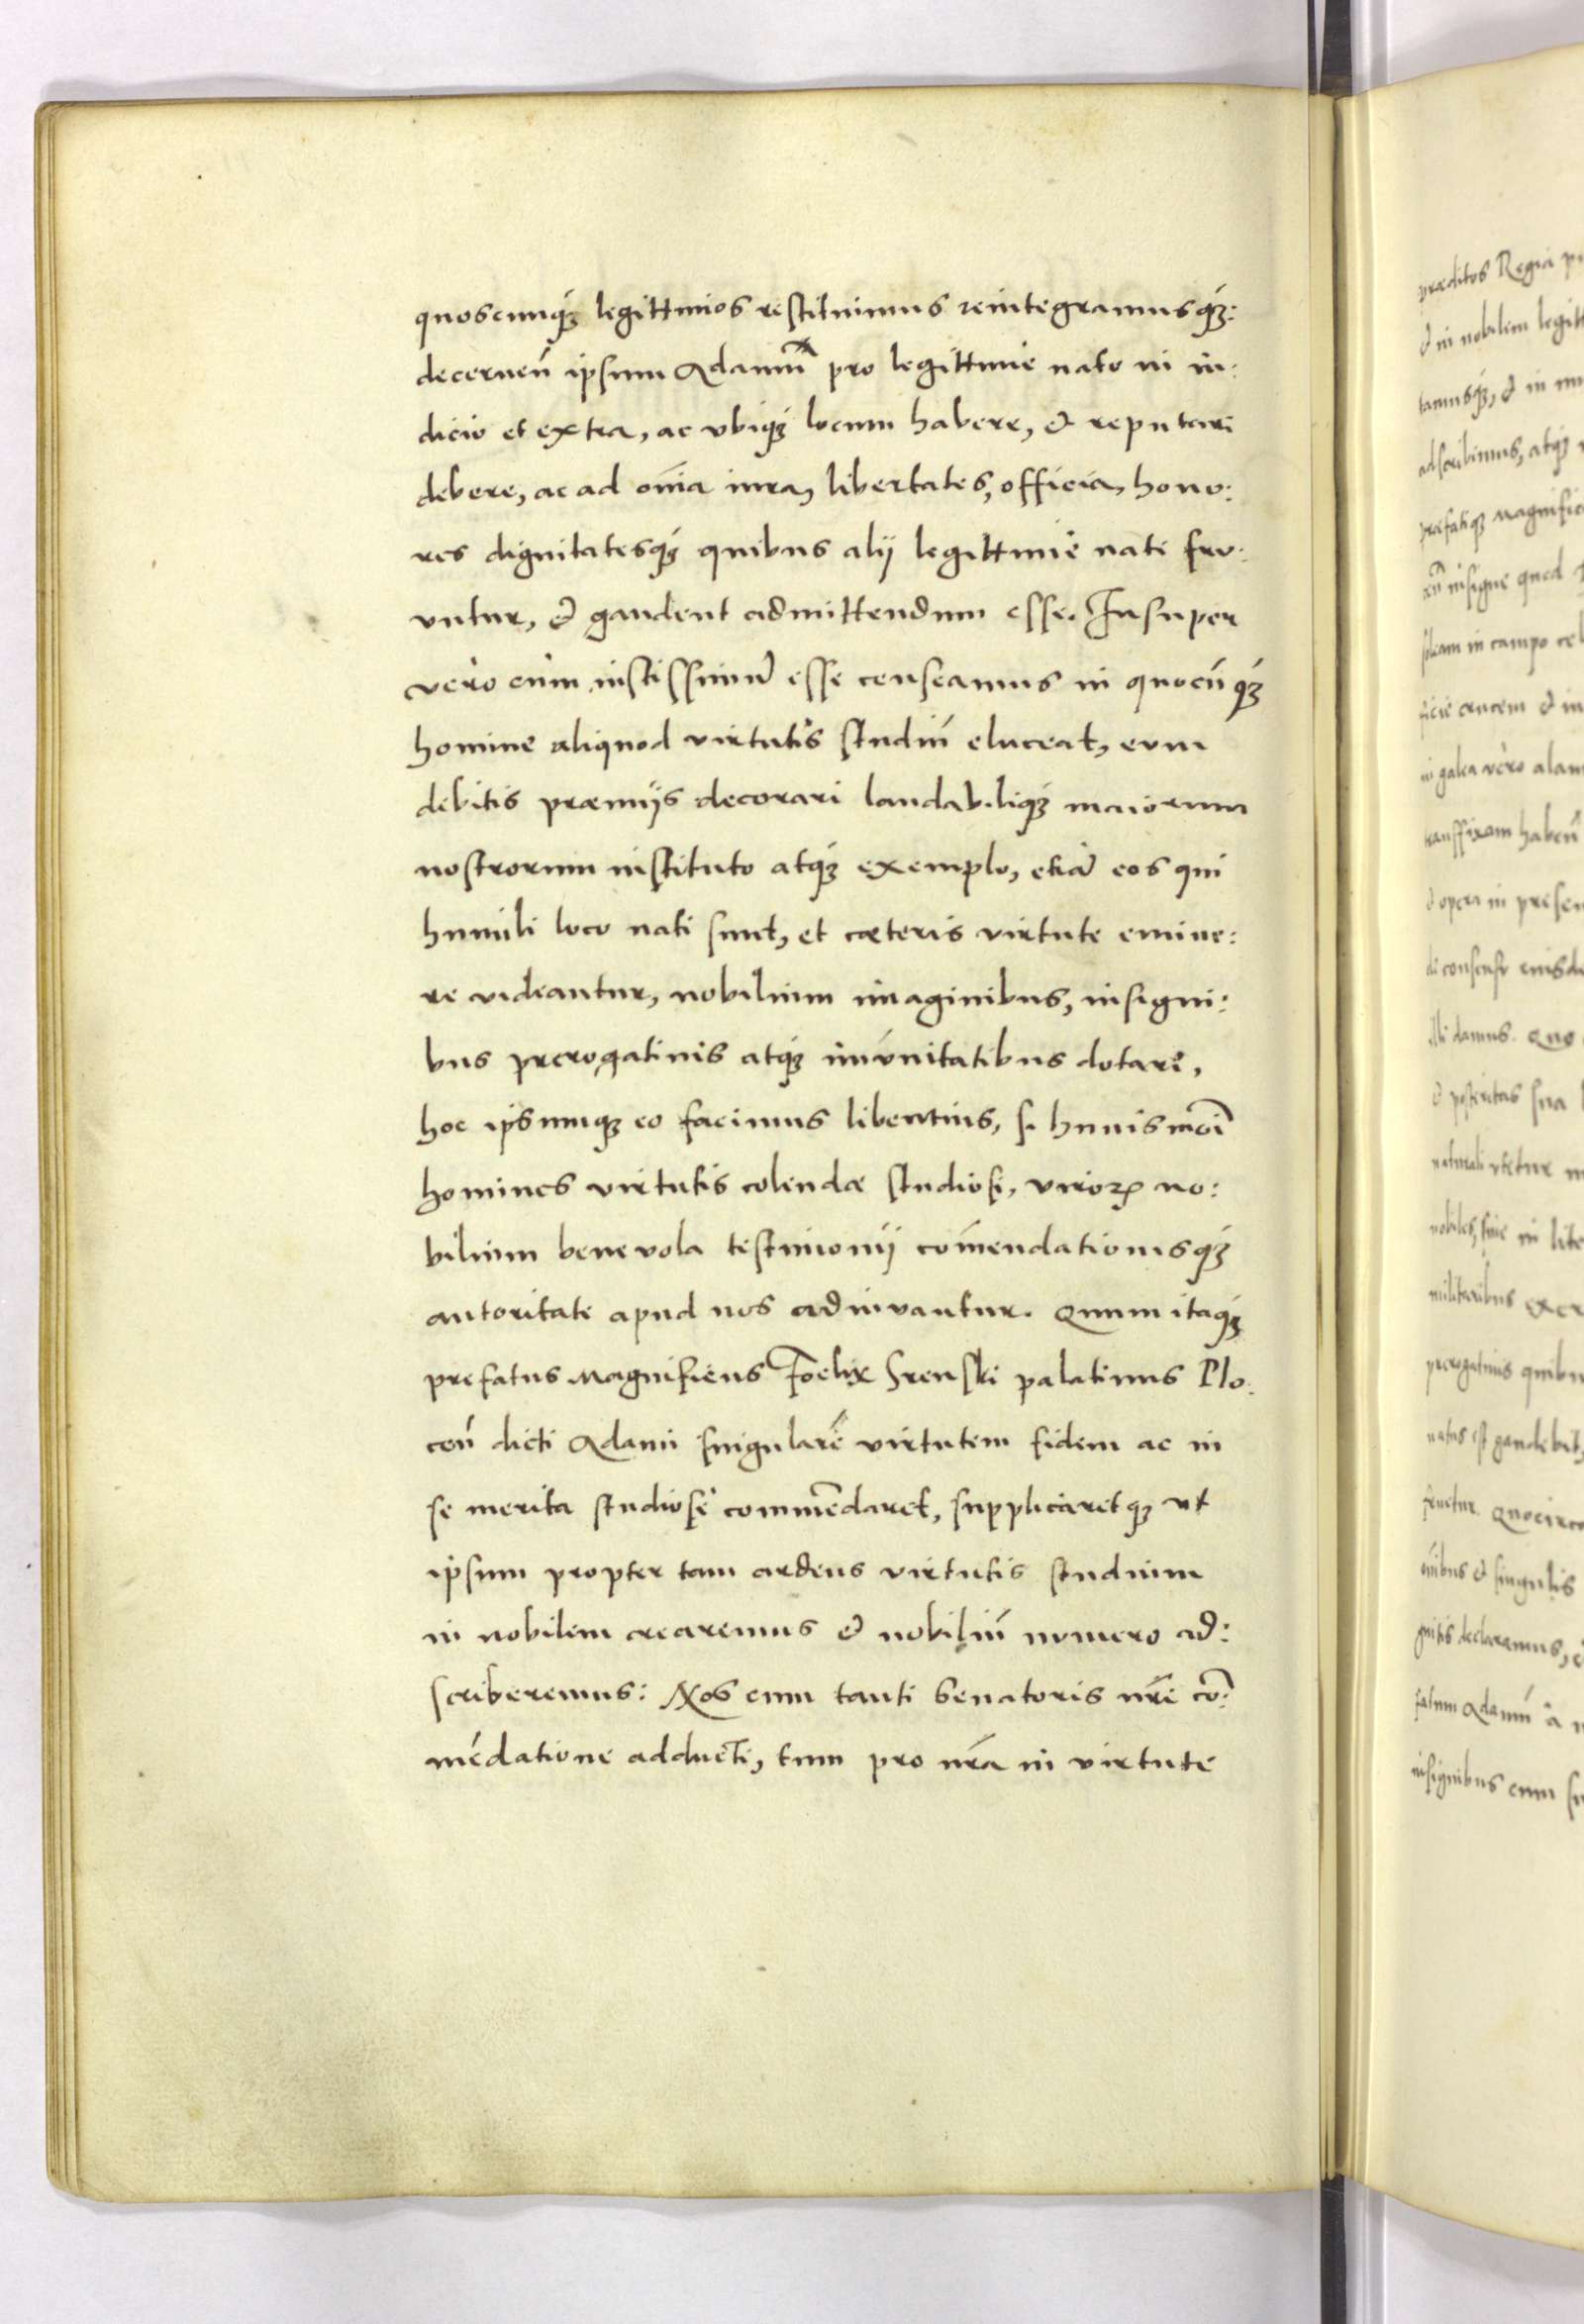 quoscunq₃ legittimos restituimus reintegramusq₃:
decerneñ ipsum Adamũ pro legittimè nato in iu:
dicio et extra, ac vbiq₃ locum habere, & reputari
debere, ac ad oĩa iura, libertates, officia, hono:
res dignitatesq₃ quibus alij legittimè nati fru:
untur, & gaudent admittendum esse. Insuper
vero cum iustissimũ esse censeamus in quocũq₃
homine aliquod virtutis studiũ eluceat, eum
debitis præmijs decorari laudabiliq₃ maiorum
nostrorum instituto atq₃ exemplo, etiã eos qui
humili loco nati sunt, et cæteris virtute emine:
re videantur, nobilium imaginibus, insigni:
bus prerogatiuis atq₃ imũnitatibus dotari,
hoc ipsumq₃ eo facimus libentius, si huiusmõi
homines virtutis colendæ studiosi, viroꝝ no:
bilium beneuola testimonij com̃endationisq₃
autoritate apud nos adiuvantur. Quum itaq₃
prefatus Magnificus Foelix Srenski palatinus Plo:
ceñ dicti Adami singularẽ virtutem fidem ac in
se merita studiosè commẽdaret, supplicaretq₃ vt
ipsum propter tam ardens virtutis studium
in nobilem crearemus & nobiliũ numero ad:
scriberemus: Nos cum tanti Senatoris nr̃i cõ:
mẽdatione adducti, tum pro nr̃a in virtute
præditos Regia
& in nobilem
tamusq₃, & in
adscribimus, atq₃
præfatiq₃
insigne quod
soleam in campo
crucem & in
in galea vero
habeñ
& opera in
de consensu
damus. Quo
& posteritas sua
naturali vtetur
nobiles, siue in
militaribus
prerogatiuis
natus est gaudebit,
fruetur. Quocirca
oĩbus & singulis
declaramus,
Adamũ à
insignibus cum